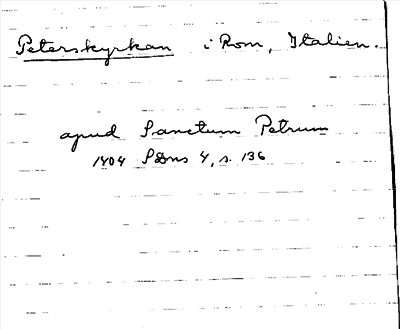 Peterskyrkan i Rom, Italien.
apud Sanctum Petrum
1404 PDns 4, s. 136